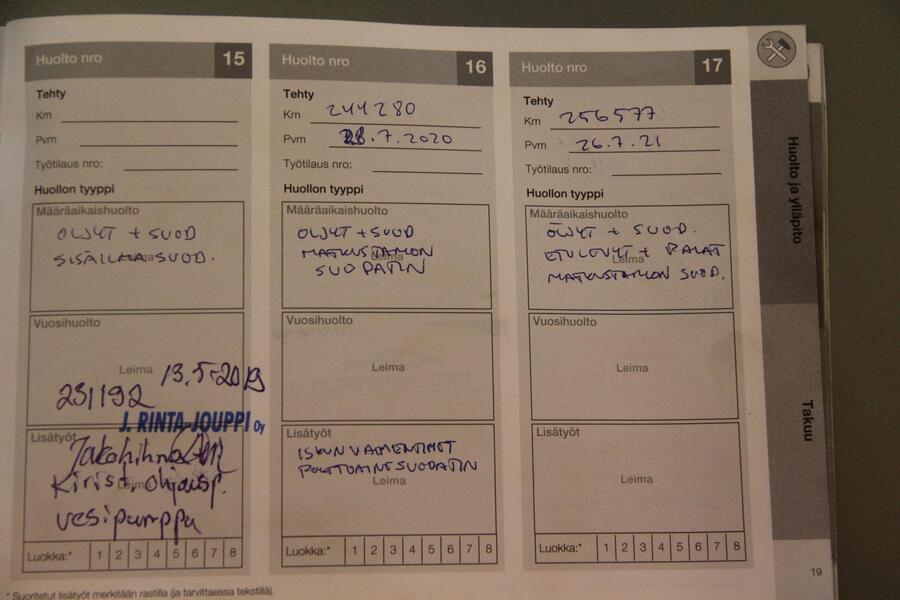 Huolto nro 15
Tehty
Km
Pvm
Työtilaus nro:
Huollon tyyppi
Määräaikaishuolto
ÖLJYT + SUOD
SISÄILMA SUOD.
Vuosihuolto
Leima
13.5-2019
231192
J. RINTA-JOUPPI Oy
Lisätyöt
Jakohihna
Kirist. ohjausp.
Leima
vesipumppu
Luokka:* 1 2 3 4 5 6 7 8
Huolto nro 16
Tehty
Km 244280
Pvm 28.7.2020
Työtilaus nro:
Huollon tyyppi
Määräaikaishuolto
ÖLJYT + SUOD
MATKUSTAMON
Leima
SUODATIN
Vuosihuolto
Leima
Lisätyöt
ISKUNVAIMENTIMET
POLTTOAINESUODATIN
Leima
Luokka:* 1 2 3 4 5 6 7 8
Huolto nro 17
Tehty
Km 256577
Pvm 26.7.21
Työtilaus nro:
Huollon tyyppi
Määräaikaishuolto
ÖLJYT + SUOD.
ETULEVYT + PALAT
Leima
MATKUSTAMON SUOD.
Vuosihuolto
Leima
Lisätyöt
Leima
Luokka:* 1 2 3 4 5 6 7 8
Huolto ja ylläpito
Takuu
19
* Suoritetut lisätyöt merkitään rastilla (ja tarvittaessa tekstillä).